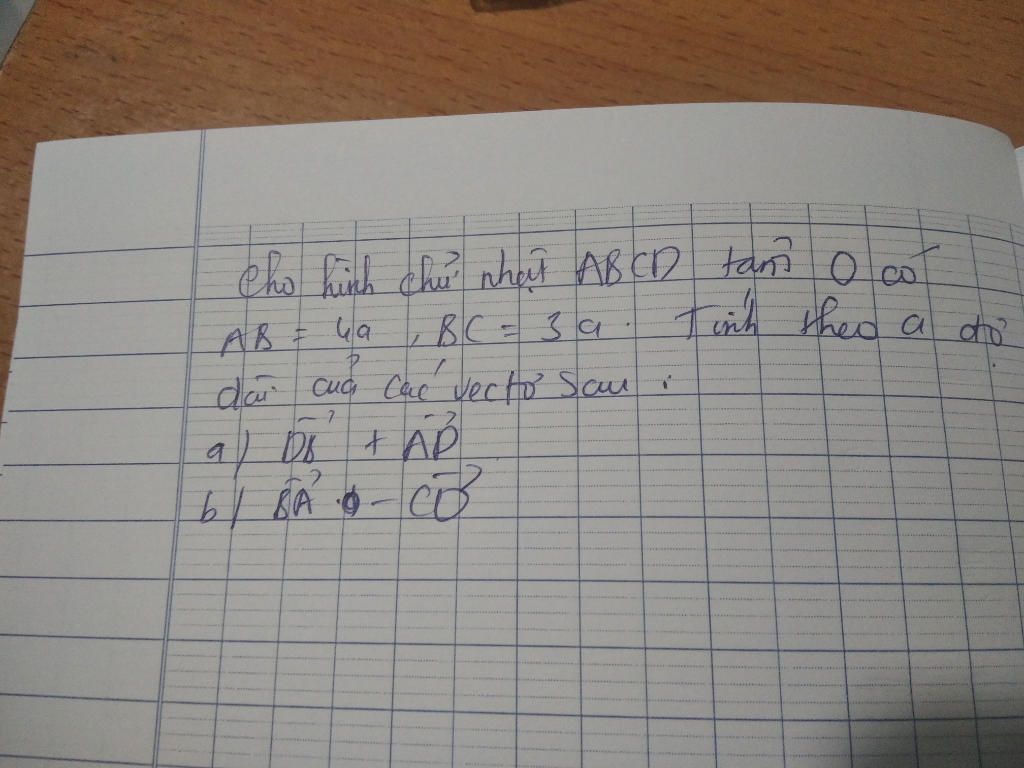 Cho hình chữ nhật ABCD tâm O có
AB = 4a , BC = 3a . Tính theo a độ
dài của các vectơ sau :
a) DB + AD
b) BA - CD